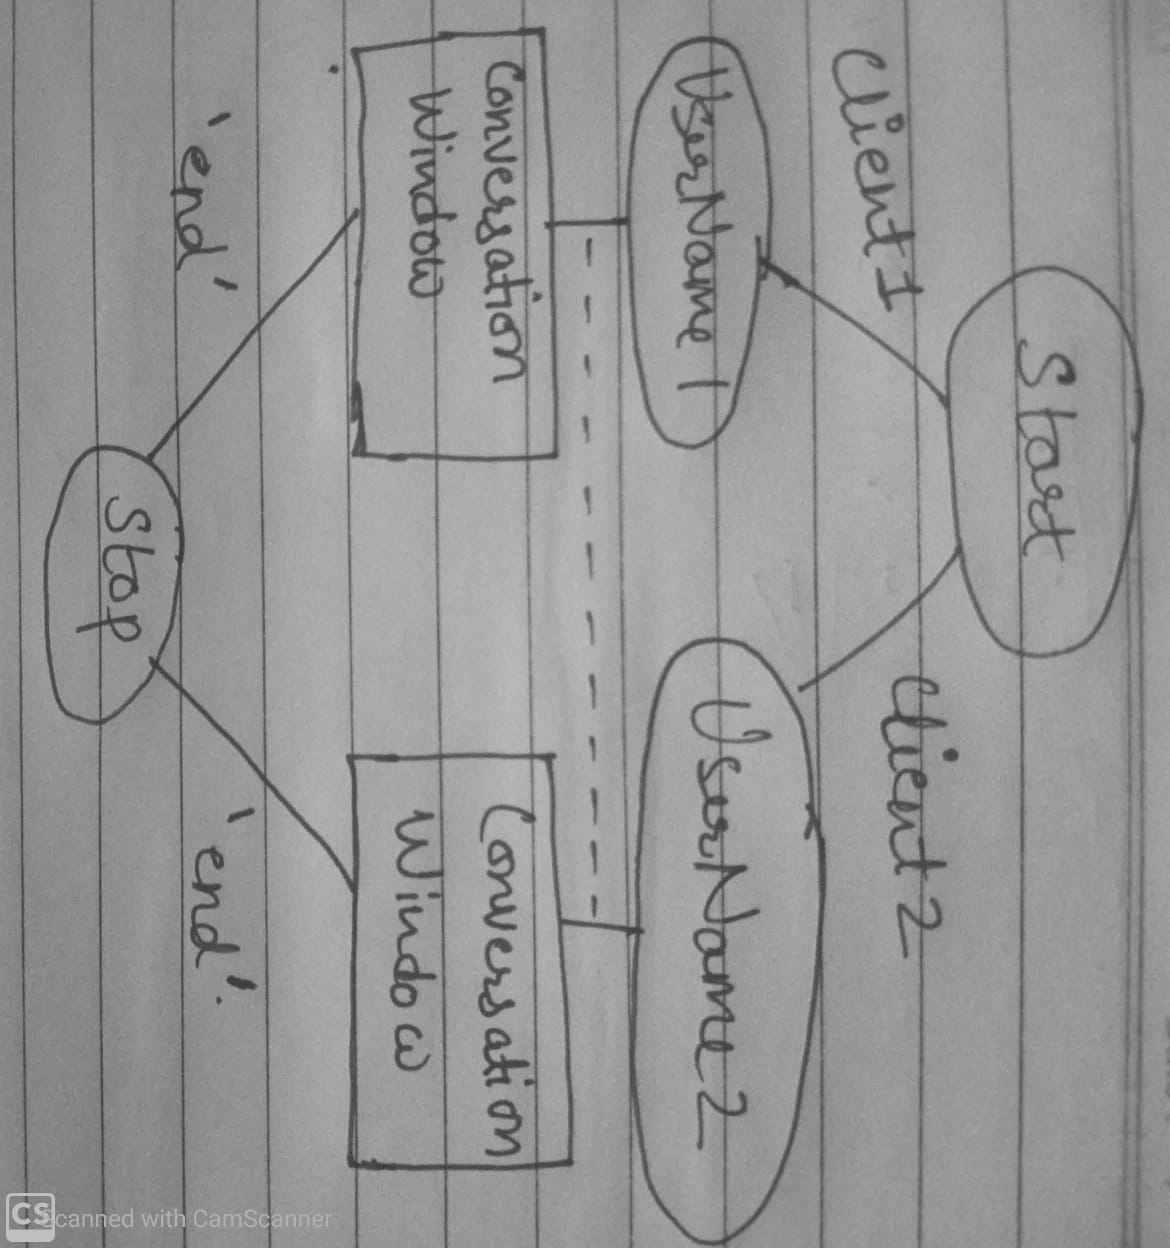 Start
Client1
Client2
UserName1
UserName2
Conversation
Window
Conversation
Window
'end'
'end'.
Stop
CS
Scanned with CamScanner